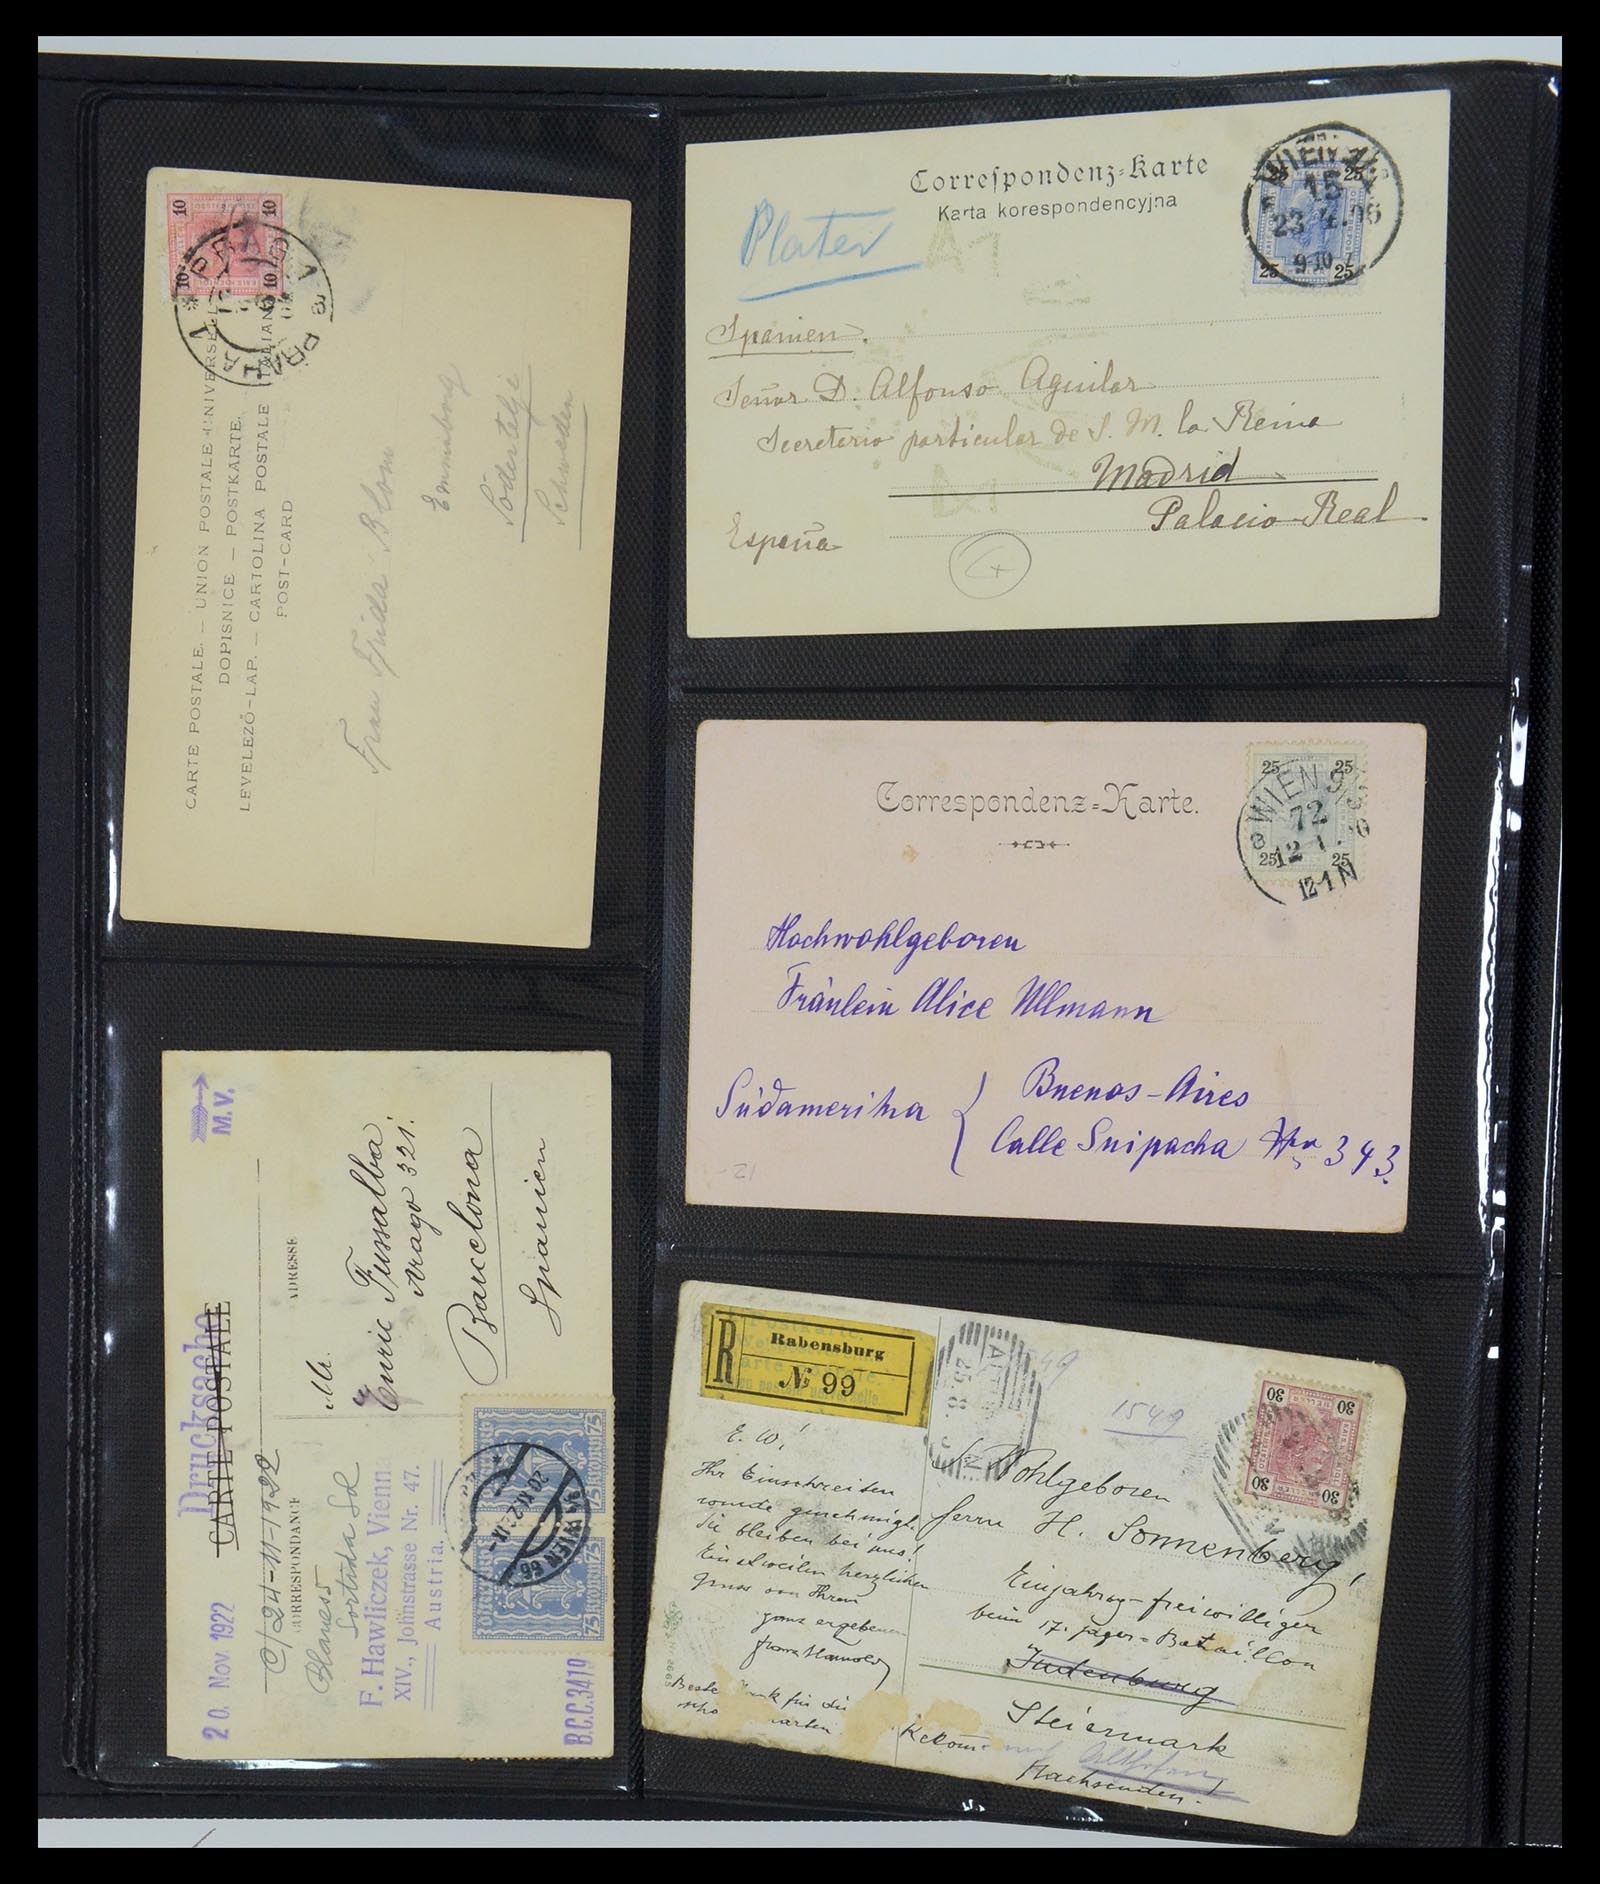 10 10
10 10
PRAHA
CARTE POSTALE. — UNION POSTALE UNIVERSELLE
DOPISNICE — POSTKARTE.
LEVELEZŐ-LAP. — CARTOLINA POSTALE ITALIANA
POST-CARD
Frau Frida Blom
Södertelje
Schweden
Correspondenz-Karte
Karta korespondencyjna
25 25
25 25
WIEN
15
23.4.06
Spanien.
Señor D. Alfonso Aguilar
Secretario particular de S. M. la Reina
Madrid
Palacio Real
España
Correspondenz-Karte.
25 25
25 25
WIEN 9/3
72
12.1.
12-1N
Hochwohlgeboren
Fräulein Alice Ullmann
Südamerika
Buenos-Aires
Calle Suipacha Nro 343
21
M.V.
Drucksache
CARTE POSTALE
ADRESSE
CORRESPONDANCE
C/24-11-1922
20. Nov 1922
Mr.
Enric Fussalba
Arago 321.
Barcelona
Spanien
F. Hawliczek, Vienna
XIV., Johnstrasse Nr. 47.
Austria.
B.C.C. 3419
75 KRONEN 75
75 KRONEN 75
WIEN 66
R
Rabensburg
№ 99
1549
30 30
30 30
E. W!
Ihr Einschreiten
wurde genehmigt.
Sie bleiben bei uns!
Einstweilen herzlichen
Gruss von Ihrem
ganz ergebenen
Beste für die
Karten
Wohlgeboren
Herrn H. Sonnenberg,
Einjährig-freiwilliger
beim 17. Jäger-Bataillon
Judenburg
Steiermark
Nachsenden.